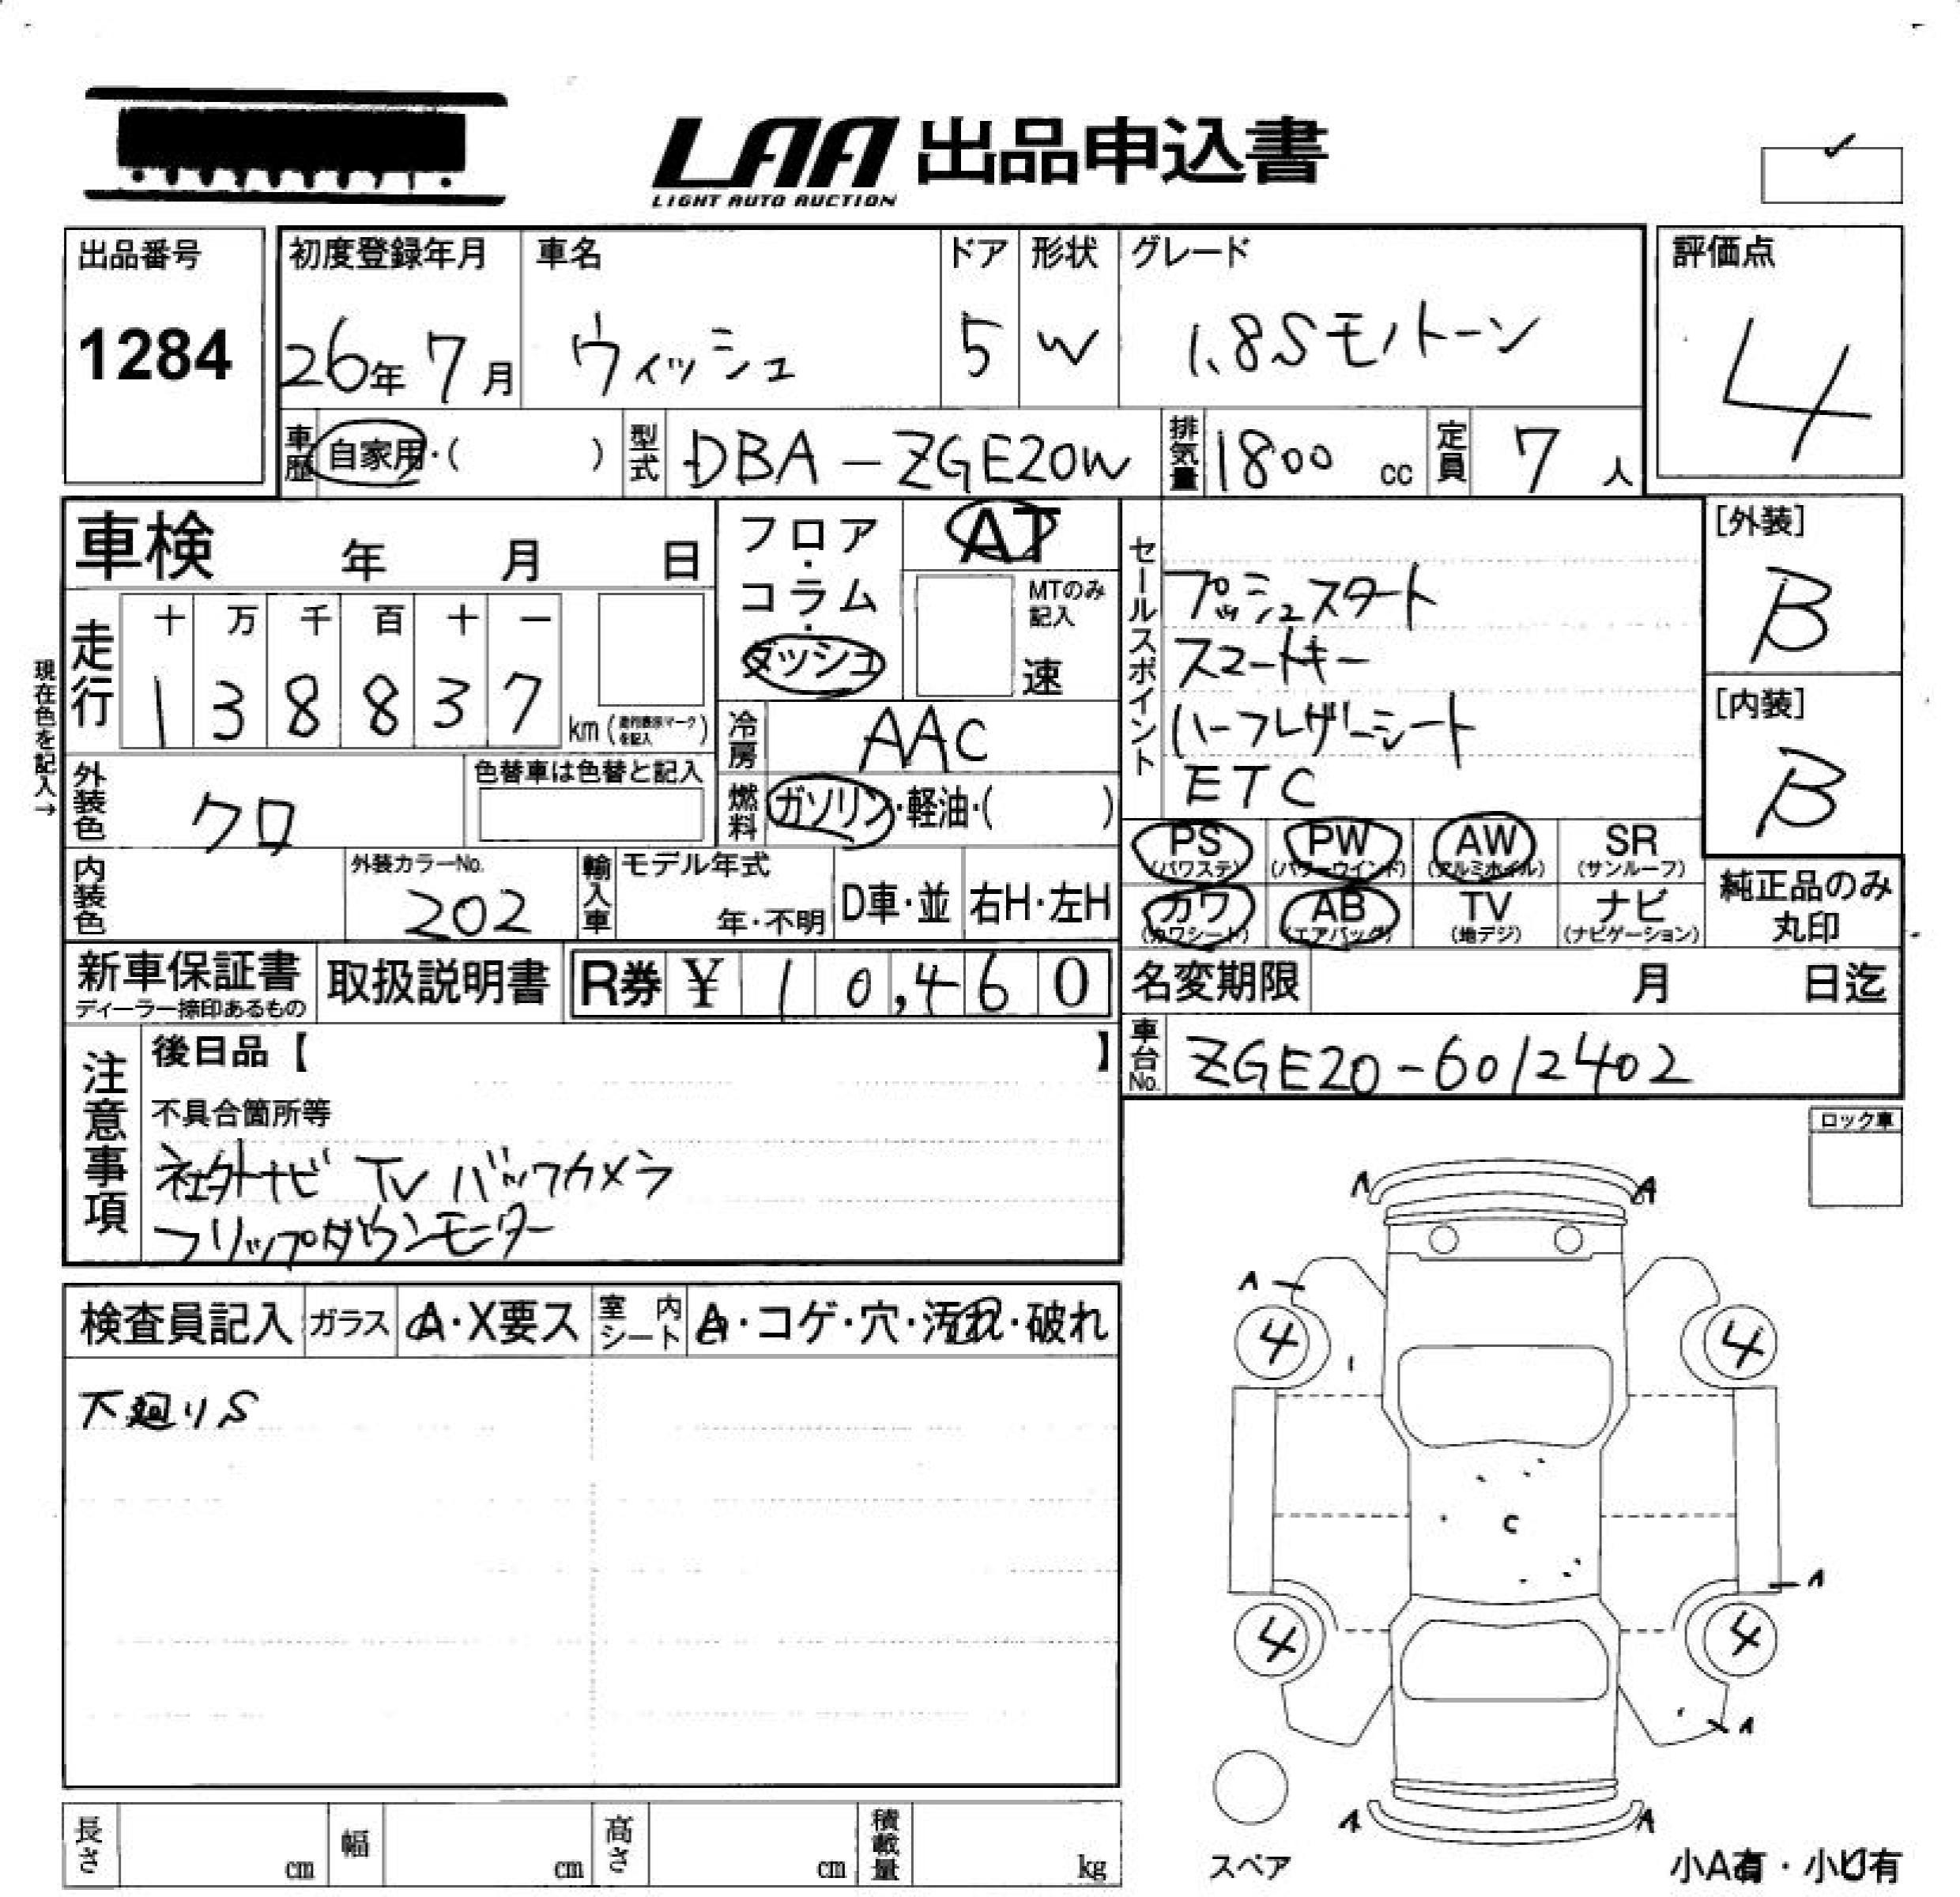 LAA 出品申込書
LIGHT AUTO AUCTION
出品番号
1284
初度登録年月 車名 ドア 形状 グレード
26年 7月 ウィッシュ 5 W 1.8Sモノトーン
評価点
4
車歴 自家用・( ) 型式 DBA-ZGE20W 排気量 1800 cc 定員 7 人
車検 年 月 日
フロア・コラム・ダッシュ
AT
MTのみ記入
速
セールスポイント
プッシュスタート
スマートキー
ハーフレザーシート
ETC
[外装]
B
[内装]
B
現在色を記入→
走行 十 万 千 百 十 一
1 3 8 8 3 7 km (走行表示マークを記入)
冷房 AAC
外装色 クロ 色替車は色替と記入
燃料 ガソリン・軽油・( )
PS (パワステ) PW (パワーウインド) AW (アルミホイル) SR (サンルーフ)
カワ (カワシート) AB (エアバッグ) TV (地デジ) ナビ (ナビゲーション)
純正品のみ
丸印
内装色 外装カラーNo. 202 輸入車 モデル年式 年・不明 D車・並 右H・左H
新車保証書 ディーラー捺印あるもの 取扱説明書 R券 ¥ 10,460
名変期限 月 日迄
車台No. ZGE20-6012402
注意事項
後日品【 】
不具合箇所等
社外ナビ TV バックカメラ
フリップダウンモニター
ロック車
検査員記入 ガラス A・X要ス 室内シート A・コゲ・穴・汚れ・破れ
下廻りS
A A
A
4 4
C
A
4 4
A
A A
スペア
小A有・小U有
長さ cm 幅 cm 高さ cm 積載量 kg